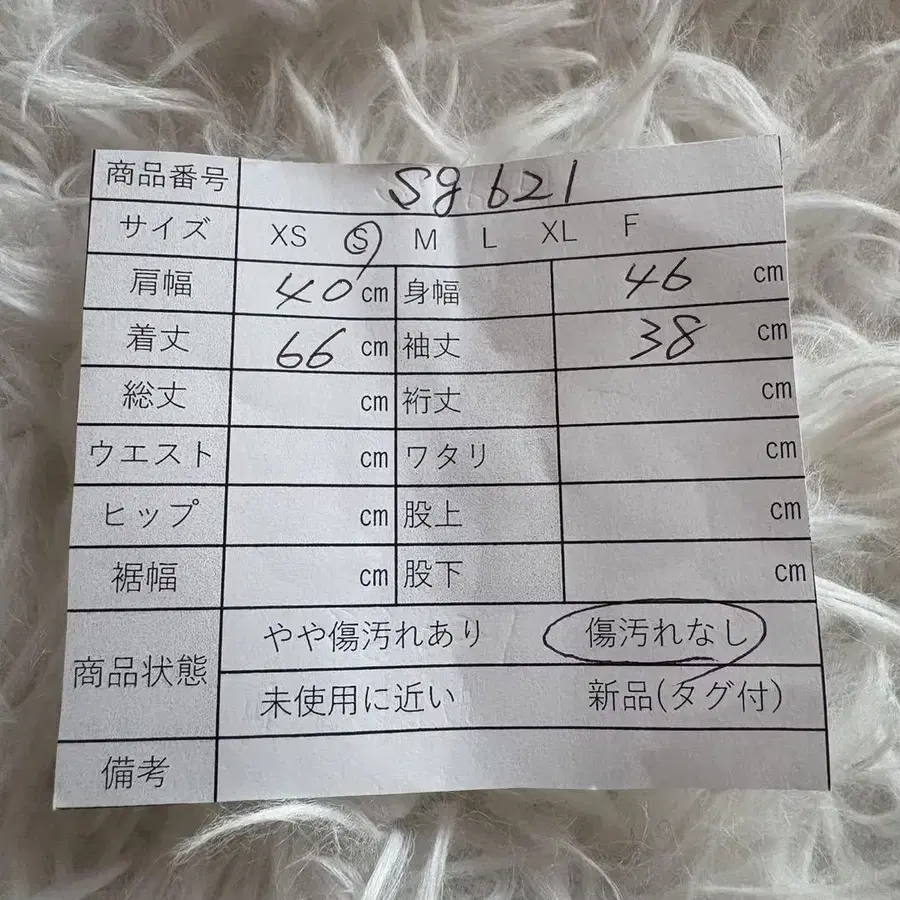 商品番号 sg 621
サイズ XS S M L XL F
肩幅 40 cm 身幅 46 cm
着丈 66 cm 袖丈 38 cm
総丈 cm 裄丈 cm
ウエスト cm ワタリ cm
ヒップ cm 股上 cm
裾幅 cm 股下 cm
商品状態 やや傷汚れあり 傷汚れなし
未使用に近い 新品(タグ付)
備考